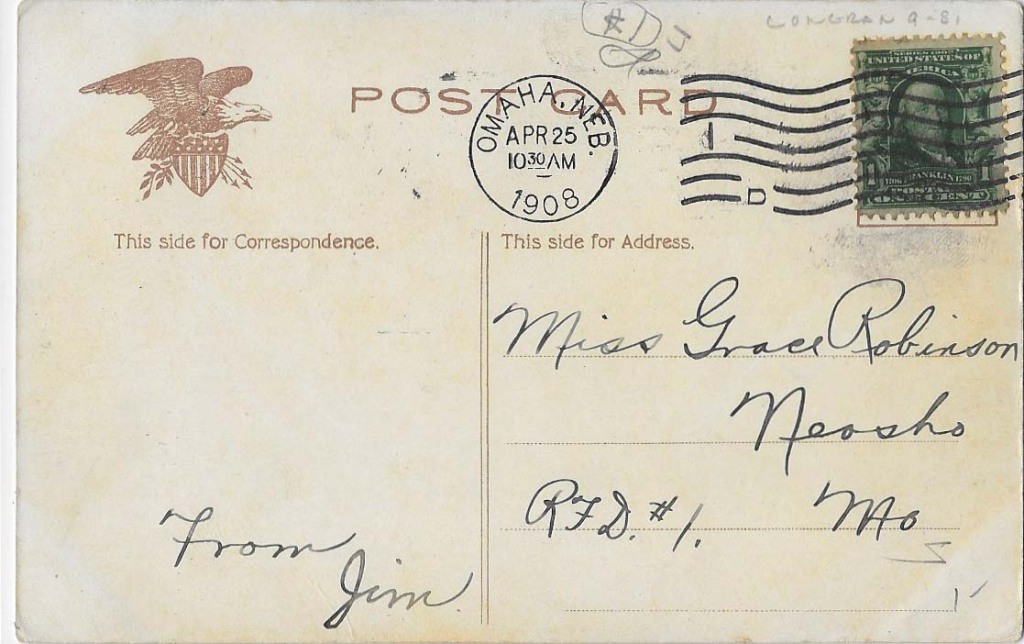 #1
POST CARD
OMAHA, NEB.
APR 25
10 30 AM
1908
D
SERIES 1902
UNITED STATES OF
AMERICA
FRANKLIN
1 1
POSTAGE
ONE CENT
This side for Correspondence.
This side for Address.
Miss Grace Robinson
Neosho
RFD. #1. Mo
From
Jim.